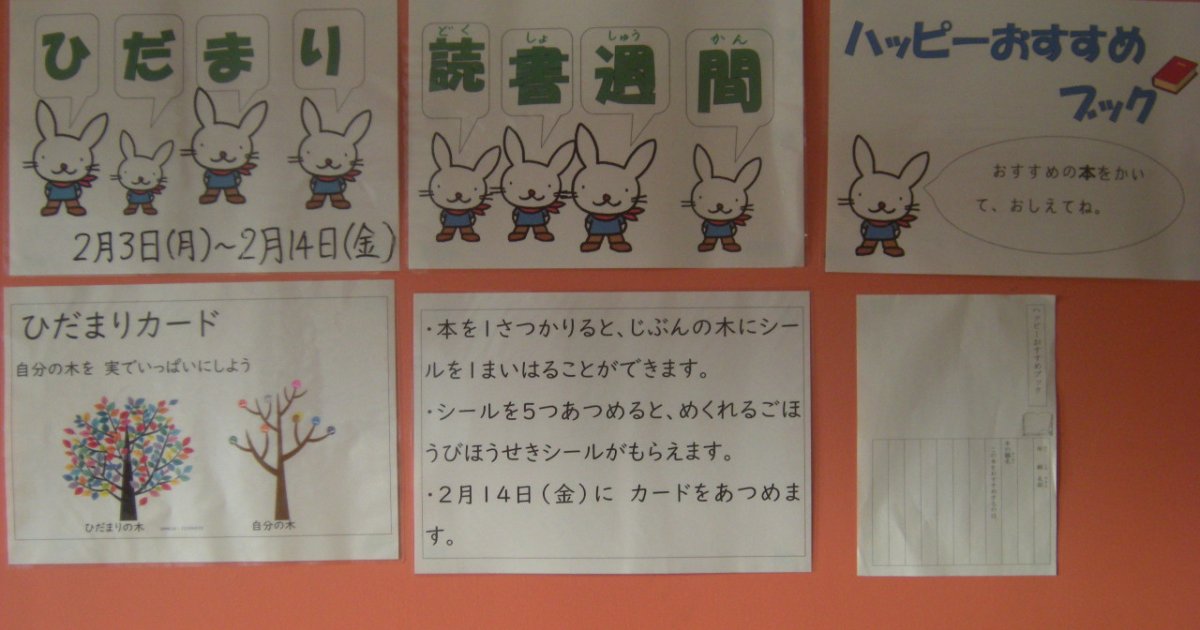 ひだまり
2月3日(月)~2月14日(金)
どく しょ しゅう かん
読書週間
ハッピーおすすめ
ブック
おすすめの本をかい
て、おしえてね。
ひだまりカード
自分の木を 実でいっぱいにしよう
ひだまりの木
自分の木
・本を1さつかりると、じぶんの木にシー
ルを1まいはることができます。
・シールを5つあつめると、めくれるごほ
うびほうせきシールがもらえます。
・2月14日(金)に カードをあつめま
す。
ハッピーおすすめブック